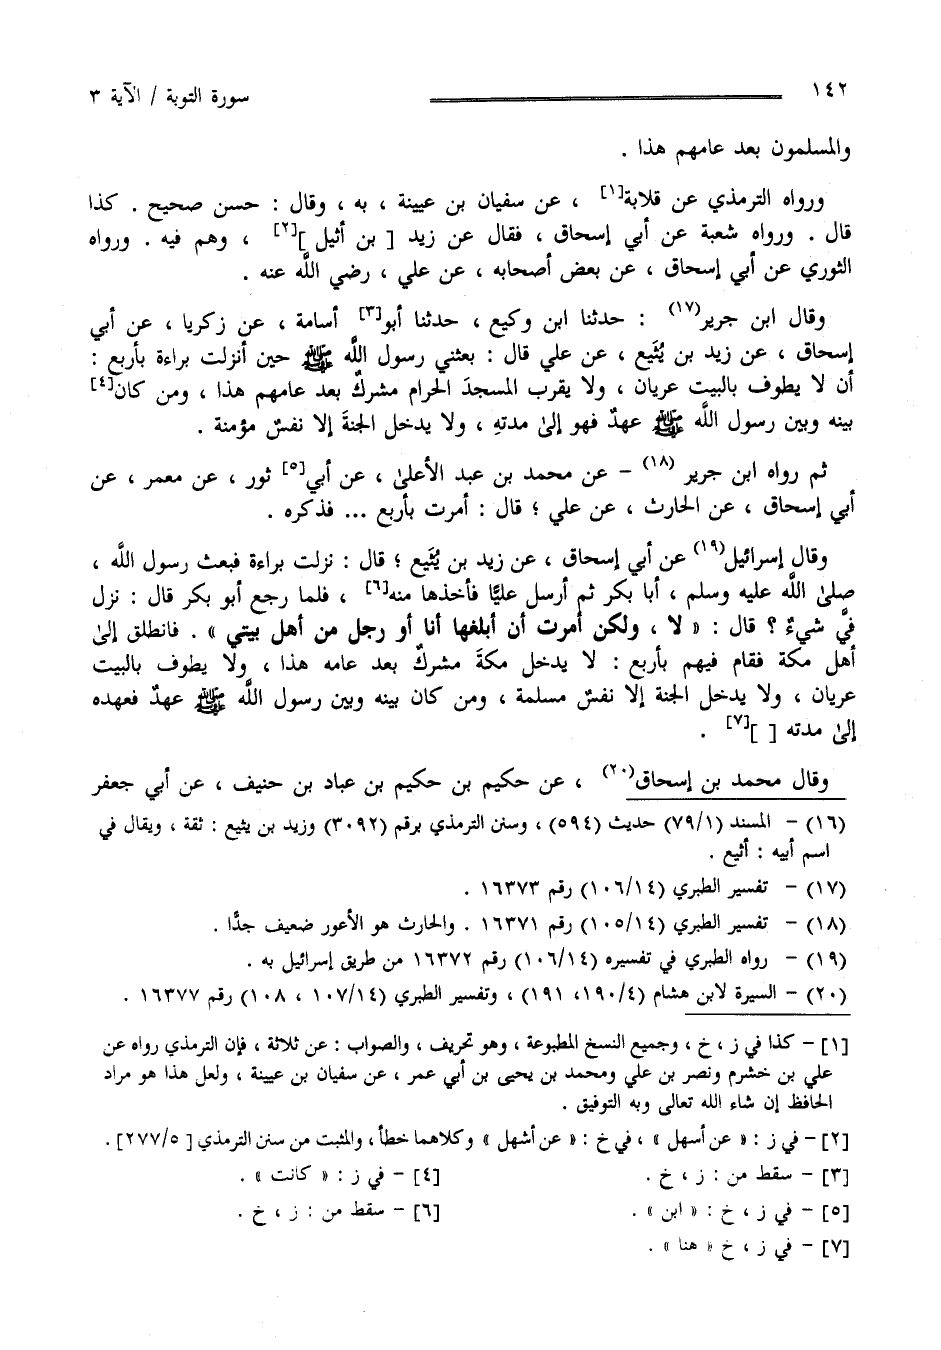 ١٤٢ سورة التوبة / الآية ٣
والمسلمون بعد عامهم هذا .
ورواه الترمذي عن قلابة[١] ، عن سفيان بن عيينة ، به ، وقال : حسن صحيح . كذا
قال . ورواه شعبة عن أبي إسحاق ، فقال عن زيد [ بن أثيل ][٢] ، وهم فيه . ورواه
الثوري عن أبي إسحاق ، عن بعض أصحابه ، عن علي ، رضي اللَّه عنه .
وقال ابن جرير(١٧) : حدثنا ابن وكيع ، حدثنا أبو[٣] أسامة ، عن زكريا ، عن أبي
إسحاق ، عن زيد بن يُثَيع ، عن علي قال : بعثني رسول اللَّه ﷺ حين أنزلت براءة بأربع :
أن لا يطوف بالبيت عريان ، ولا يقرب المسجدَ الحرام مشركٌ بعد عامهم هذا ، ومن كان[٤]
بينه وبين رسول اللَّه ﷺ عهدٌ فهو إلىٰ مدتهِ ، ولا يدخل الجنةَ إلا نفسٌ مؤمنة .
ثم رواه ابن جرير (١٨) – عن محمد بن عبد الأعلىٰ ، عن أبي[٥] ثور ، عن معمر ، عن
أبي إسحاق ، عن الحارث ، عن علي ؛ قال : أمرت بأربع ... فذكره .
وقال إسرائيل(١٩) عن أبي إسحاق ، عن زيد بن يُثَيع ؛ قال : نزلت براءة فبعث رسول اللَّه ،
صلىٰ اللَّه عليه وسلم ، أبا بكر ثم أرسل عليًّا فأخذها منه[٦] ، فلما رجع أبو بكر قال : نزل
فيَّ شيءٌ ؟ قال : « لا ، ولكن أمرت أن أبلغها أنا أو رجل من أهل بيتي » . فانطلق إلىٰ
أهل مكة فقام فيهم بأربع : لا يدخل مكةَ مشركٌ بعد عامه هذا ، ولا يطوف بالبيت
عريان ، ولا يدخل الجنة إلا نفسٌ مسلمة ، ومن كان بينه وبين رسول اللَّه ﷺ عهدٌ فعهده
إلىٰ مدته [ ][٧] .
وقال محمد بن إسحاق(٢٠) ، عن حكيم بن حكيم بن عباد بن حنيف ، عن أبي جعفر
(١٦) – المسند (٧٩/١) حديث (٥٩٤) ، وسنن الترمذي برقم (٣٠٩٢) وزيد بن يثيع : ثقة ، ويقال في
اسم أبيه : أثيع .
(١٧) – تفسير الطبري (١٠٦/١٤) رقم ١٦٣٧٣ .
(١٨) – تفسير الطبري (١٠٥/١٤) رقم ١٦٣٧١ . والحارث هو الأعور ضعيف جدًّا .
(١٩) – رواه الطبري في تفسيره (١٠٦/١٤) رقم ١٦٣٧٢ من طريق إسرائيل به .
(٢٠) – السيرة لابن هشام (١٩٠/٤، ١٩١) ، وتفسير الطبري (١٠٧/١٤ ، ١٠٨) رقم ١٦٣٧٧ .
[١] – كذا في ز ، خ ، وجميع النسخ المطبوعة ، وهو تحريف ، والصواب : عن ثلاثة ، فإن الترمذي رواه عن
علي بن خشرم ونصر بن علي ومحمد بن يحيى بن أبي عمر ، عن سفيان بن عيينة ، ولعل هذا هو مراد
الحافظ إن شاء الله تعالى وبه التوفيق .
[٢] – في ز : « عن أسهل » ، في خ : « عن أشهل » وكلاهما خطأ ، والمثبت من سنن الترمذي [ ٢٧٧/٥] .
[٣] – سقط من : ز ، خ . [٤] – في ز : « كانت » .
[٥] – في ز ، خ : « ابن » . [٦] – سقط من : ز ، خ .
[٧] – في ز ، خ « هنا » .